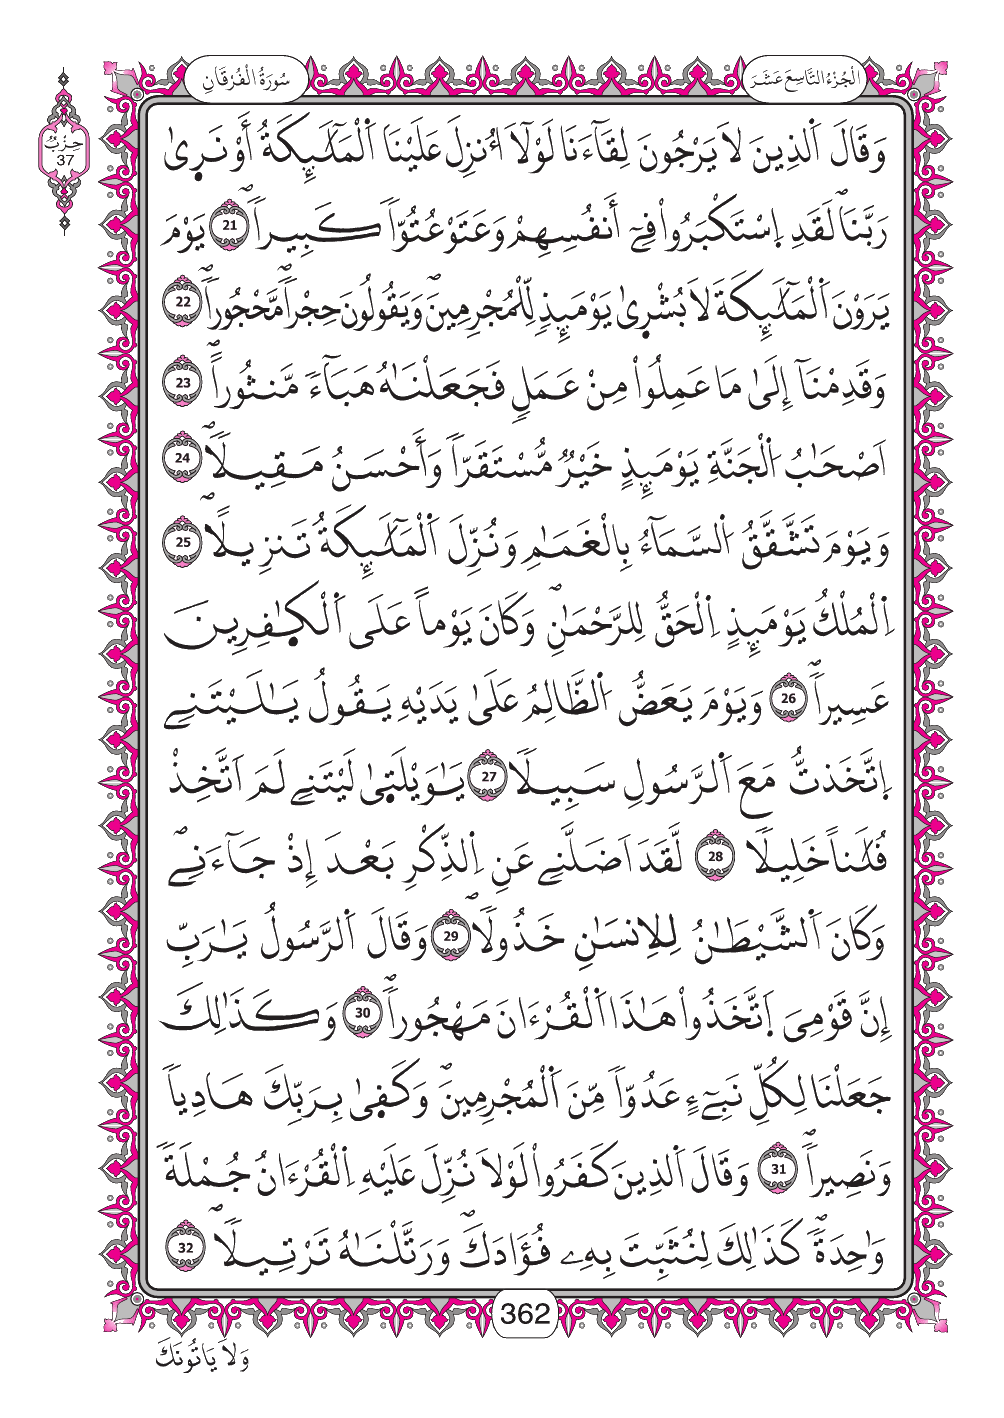 الجزء التاسع عشر
سورة الفرقان
حزب
37
وَقَالَ اَ۬لذِينَ لَا يَرْجُونَ لِقَآءَنَا لَوْلَآ أُنزِلَ عَلَيْنَا اَ۬لْمَلَٰٓئِكَةُ أَوْ نَر۪ىٰ
رَبَّنَاۖ لَقَدِ اِ۪سْتَكْبَرُواْ فِےٓ أَنفُسِهِمْ وَعَتَوْ عُتُوّاٗ كَبِيراٗۖ 21 يَوْمَ
يَرَوْنَ اَ۬لْمَلَٰٓئِكَةَ لَا بُشْر۪ىٰ يَوْمَئِذٖ لِّلْمُجْرِمِينَۖ وَيَقُولُونَ حِجْراٗ مَّحْجُوراٗۖ 22
وَقَدِمْنَآ إِلَىٰ مَا عَمِلُواْ مِنْ عَمَلٖ فَجَعَلْنَٰهُ هَبَآءٗ مَّنثُوراًۖ 23
اَصْحَٰبُ اُ۬لْجَنَّةِ يَوْمَئِذٍ خَيْرٞ مُّسْتَقَرّاٗ وَأَحْسَنُ مَقِيلاٗۖ 24
وَيَوْمَ تَشَّقَّقُ اُ۬لسَّمَآءُ بِالْغَمَٰمِ وَنُزِّلَ اَ۬لْمَلَٰٓئِكَةُ تَنزِيلاًۖ 25
اِ۬لْمُلْكُ يَوْمَئِذٍ اِ۬لْحَقُّ لِلرَّحْمَٰنِۖ وَكَانَ يَوْماً عَلَى اَ۬لْكٰ۪فِرِينَ
عَسِيراٗۖ 26 وَيَوْمَ يَعَضُّ اُ۬لظَّالِمُ عَلَىٰ يَدَيْهِ يَقُولُ يَٰلَيْتَنِے
اِ۪تَّخَذتُّ مَعَ اَ۬لرَّسُولِ سَبِيلاٗ 27 يَٰوَيْلَت۪ىٰ لَيْتَنِے لَمَ اَتَّخِذْ
فُلَٰناً خَلِيلاٗ 28 لَّقَدَ اَضَلَّنِے عَنِ اِ۬لذِّكْرِ بَعْدَ إِذْ جَآءَنِےۖ
وَكَانَ اَ۬لشَّيْطَٰنُ لِلِانسَٰنِ خَذُولاٗۖ 29 وَقَالَ اَ۬لرَّسُولُ يَٰرَبِّ
إِنَّ قَوْمِيَ اَ۪تَّخَذُواْ هَٰذَا اَ۬لْقُرْءَانَ مَهْجُوراٗۖ 30 وَكَذَٰلِكَ
جَعَلْنَا لِكُلِّ نَبِےٓءٍ عَدُوّاٗ مِّنَ اَ۬لْمُجْرِمِينَۖ وَكَف۪ىٰ بِرَبِّكَ هَادِياٗ
وَنَصِيراٗۖ 31 وَقَالَ اَ۬لذِينَ كَفَرُواْ لَوْلَا نُزِّلَ عَلَيْهِ اِ۬لْقُرْءَانُ جُمْلَةٗ
وَٰحِدَةٗۖ كَذَٰلِكَ لِنُثَبِّتَ بِهِۦ فُؤَادَكَۖ وَرَتَّلْنَٰهُ تَرْتِيلاٗۖ 32
362
وَلَا يَاتُونَكَ